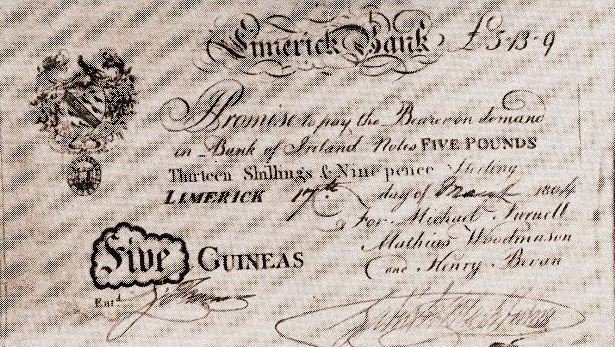 Limerick Bank £5-13-9
I Promise to pay the Bearer on demand
in Bank of Ireland Notes FIVE POUNDS
Thirteen Shillings & Nine pence Sterling
LIMERICK 17th day of March 1804
For Michael Furnell
Mathias Woodmason
and Henry Bevan
Five GUINEAS
Entd